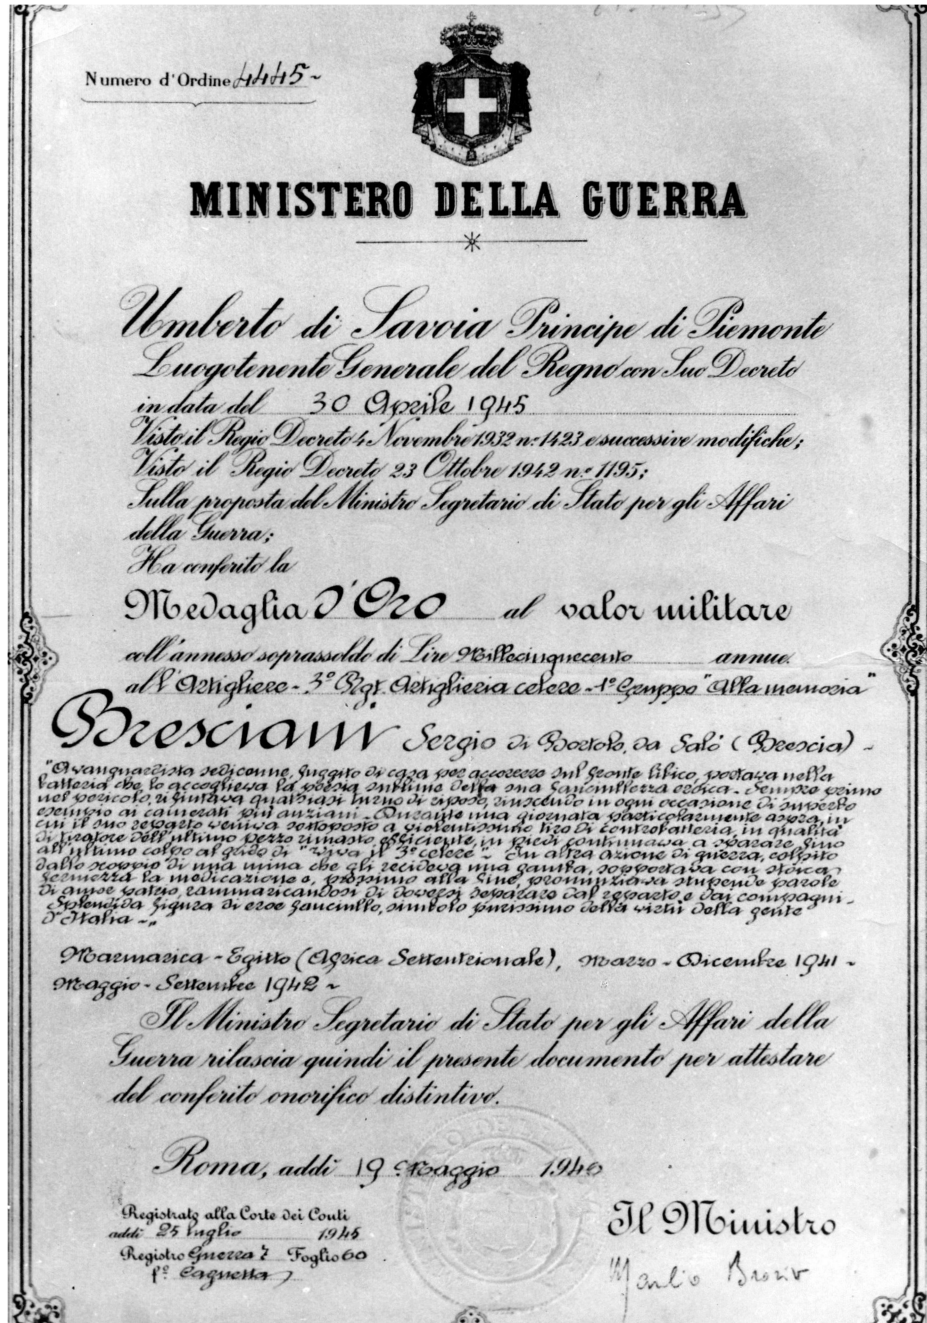 Numero d'Ordine 4445~
MINISTERO DELLA GUERRA
Umberto di Savoia Principe di Piemonte
Luogotenente Generale del Regno con Suo Decreto
in data del 30 Aprile 1945
Visto il Regio Decreto 4 Novembre 1932 n: 1423 e successive modifiche;
Visto il Regio Decreto 23 Ottobre 1942 n: 1195;
Sulla proposta del Ministro Segretario di Stato per gli Affari
della Guerra;
Ha conferito la
Medaglia d'Oro al valor militare
coll'annesso soprassoldo di Lire Millecinquecento annue.
all'Artigliere - 3° Rgt. Artiglieria celere - 1° Gruppo "Alla memoria"
Bresciani Sergio di Bortolo, da Salò (Brescia) -
"Avanguardista sedicenne, fuggito di casa per accorrere sul fronte libico, portava nella
batteria che lo accoglieva la poesia sublime della sua fanciullezza eroica. - Sempre primo
nel pericolo, rifiutava qualsiasi turno di riposo, riuscendo in ogni occasione di superbo
esempio ai camerati più anziani. - Durante una giornata particolarmente aspra, in
cui il suo reparto veniva sottoposto a violentissimo tiro di controbatteria, in qualità
di tiratore dell'ultimo pezzo rimasto efficiente, in piedi continuava a sparare fino
all'ultimo colpo al grido di "Viva il 3° celere". - In altra azione di guerra, colpito
dallo scoppio di una mina che gli recideva una gamba, sopportava con stoica
fermezza la medicazione e, prossimo alla fine, pronunziava stupende parole
di amor patrio, rammaricandosi di doversi separare dal reparto e dai compagni. -
Splendida figura di eroe fanciullo, simbolo purissimo della virtù della gente
d'Italia -".
Marmarica - Egitto (Africa Settentrionale), Marzo - Dicembre 1941 ~
Maggio - Settembre 1942 ~
Il Ministro Segretario di Stato per gli Affari della
Guerra rilascia quindi il presente documento per attestare
del conferito onorifico distintivo.
Roma, addì 19 Maggio 1946
Registrato alla Corte dei Conti
addì 25 luglio 1945
Registro Guerra 7 Foglio 60
f° Cagnetta
Il Ministro
Manlio Brosio